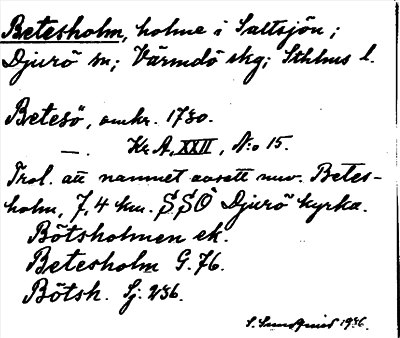 Betesholm, holme i Saltsjön;
Djurö sn; Värmdö skg; Sthlms l.
Betesö, omkr. 1730.
—. Kr. A. XXII, No 15.
Trol. att namnet avsett nuv. Betes-
holm, 7,4 km. SSO Djurö kyrka.
Bötsholmen ek.
Betesholm G. 76.
Bötsh. Sj. 236.
S. Sundquist 1936.